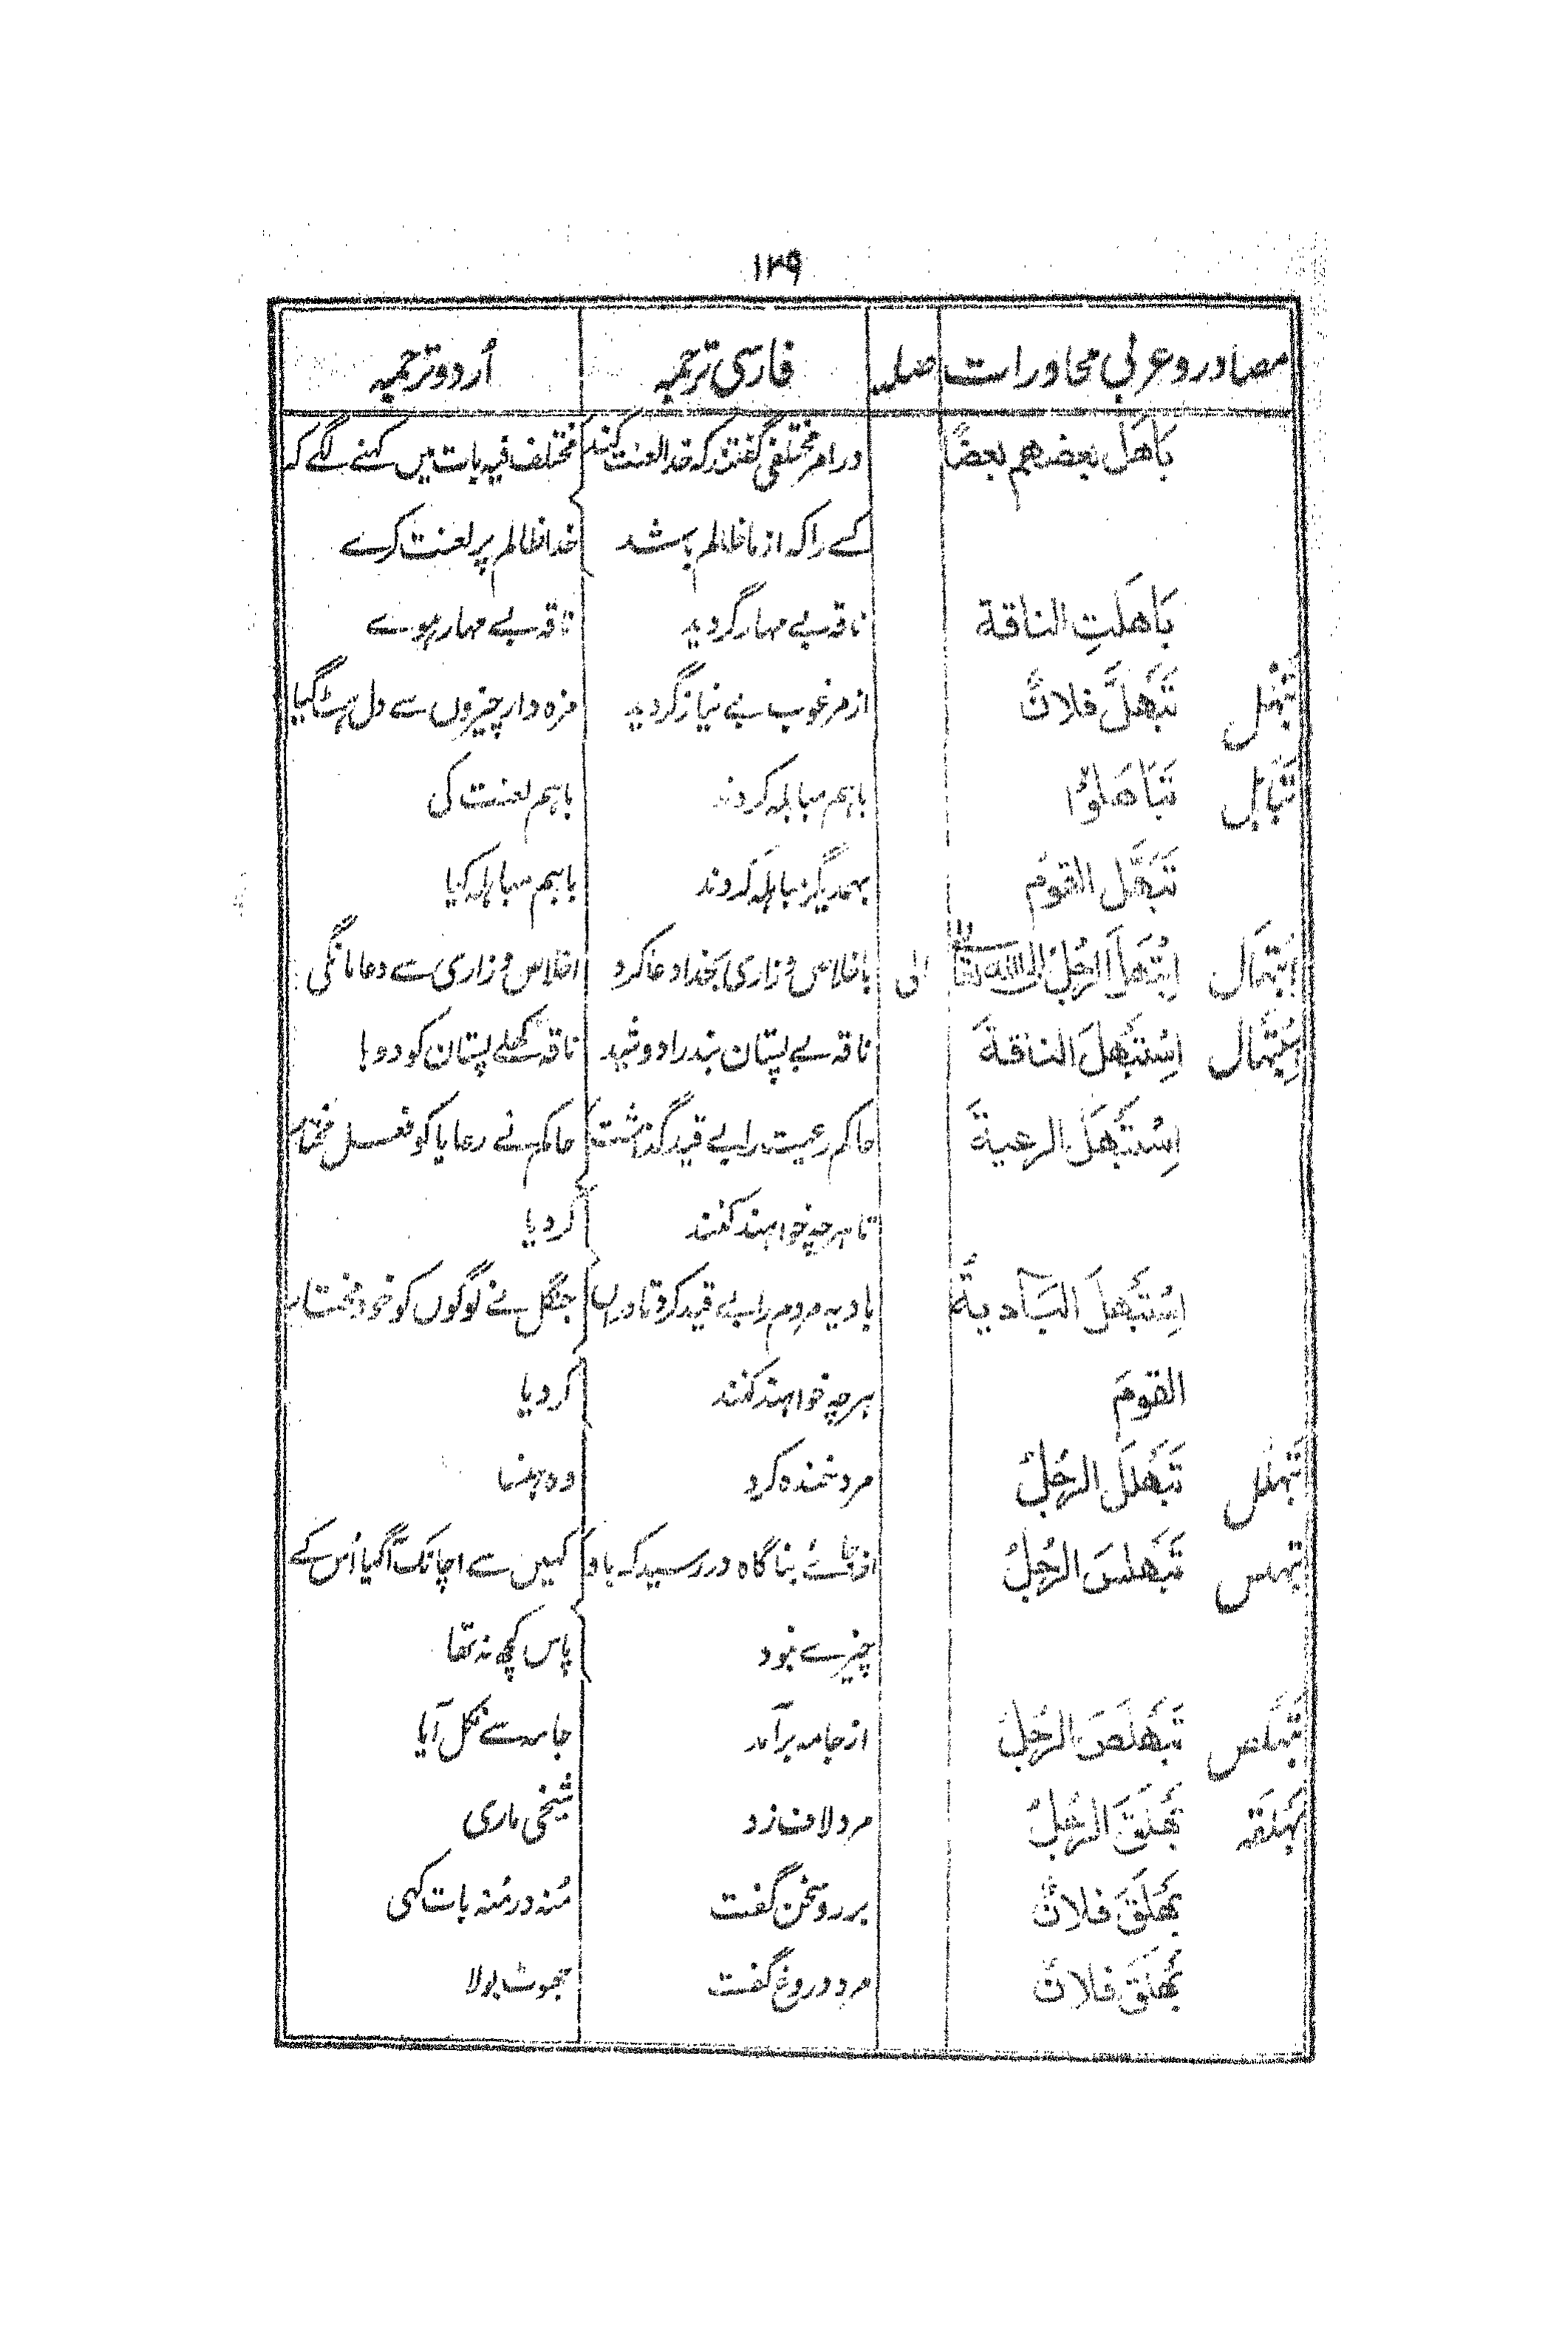 ۱۲۹
مصادر و عربی محاورات صلہ فارسی ترجمہ اُردو ترجمہ
بَاهَلَ بعضهم بعضًا در امر مختلفی گفتند کہ خدا لعنت کند مختلف فیہ بات میں کہنے لگے کہ
کسے را کہ از ما ظالم باشد خدا ظالم پر لعنت کرے
بَاهَلَتِ الناقة ناقہ بے مہار گردید ناقہ بے مہار ہوے
تَبَہُّل تَبَهَّلَ فلانٌ از مرغوب بے نیاز گردید مزہ دار چیزوں سے دل ہٹ گیا
تَبَاہُل تَبَاهَلُوْا باہم مباہلہ کردند باہم لعنت کی
تَبَهَّلَ القومُ بہمدیگر مباہلہ کردند باہم مباہلہ کیا
اِبْتِہَال اِبْتَهَلَ الرجُلُ الی اللہ تعالیٰ الی باخلاص و زاری بخدا دعا کرد اخلاص و زاری سے دعا مانگی
اِسْتِبْہَال اِسْتَبْهَلَ الناقةَ ناقہ بے پستان بند را دوشید ناقہ کھلے پستان کو دوہا
اِسْتَبْهَلَ الرعيةَ حاکم رعیت را بے قید گذاشت حاکم نے رعایا کو فعل مختار
تا ہرچہ خواہند کنند کردیا
اِسْتَبْهَلَ البَادیةُ بادیہ مردم را بے قید کرد تا دراں جنگل نے لوگوں کو خود مختار
القومَ ہرچہ خواہند کنند کردیا
تَبَہْلُل تَبَهْلَلَ الرجُلُ مرد خندہ کرد وہ ہنسا
تبہلس تَبَهْلَسَ الرجُلُ از جائے بناگاہ در رسید کہ باو کہیں سے اچانک آگیا اُس کے
چیزے نبود پاس کچھ نہ تھا
تَبَہْلُص تَبَهْلَصَ الرجُلُ از جامہ برآمد جامہ سے نکل آیا
بَہْلَقَہ بَهْلَقَ الرجُلُ مرد لاف زد شیخی ماری
بَهْلَقَ فلانٌ بر رو سخن گفت مُنہ در مُنہ بات کہی
بَهْلَقَ فلانٌ مرد دروغ گفت جھوٹ بولا